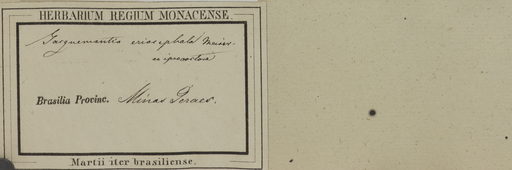 HERBARIUM REGIUM MONACENSE.
Jacquemontia eriocephala Meisn.
Brasilia Provinc. Minas Geraes.
Martii iter brasiliense.